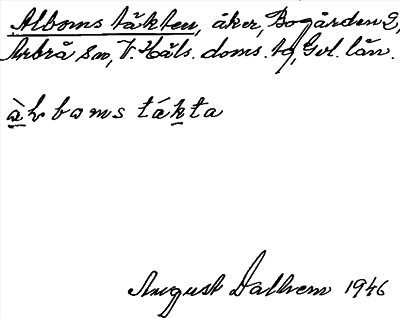 Alboms täkten, åker, Bogården 2,
Arbrå sn, V. Häls. doms. tg, Gvl. län.
àlboms tákta
August Dallrem 1946